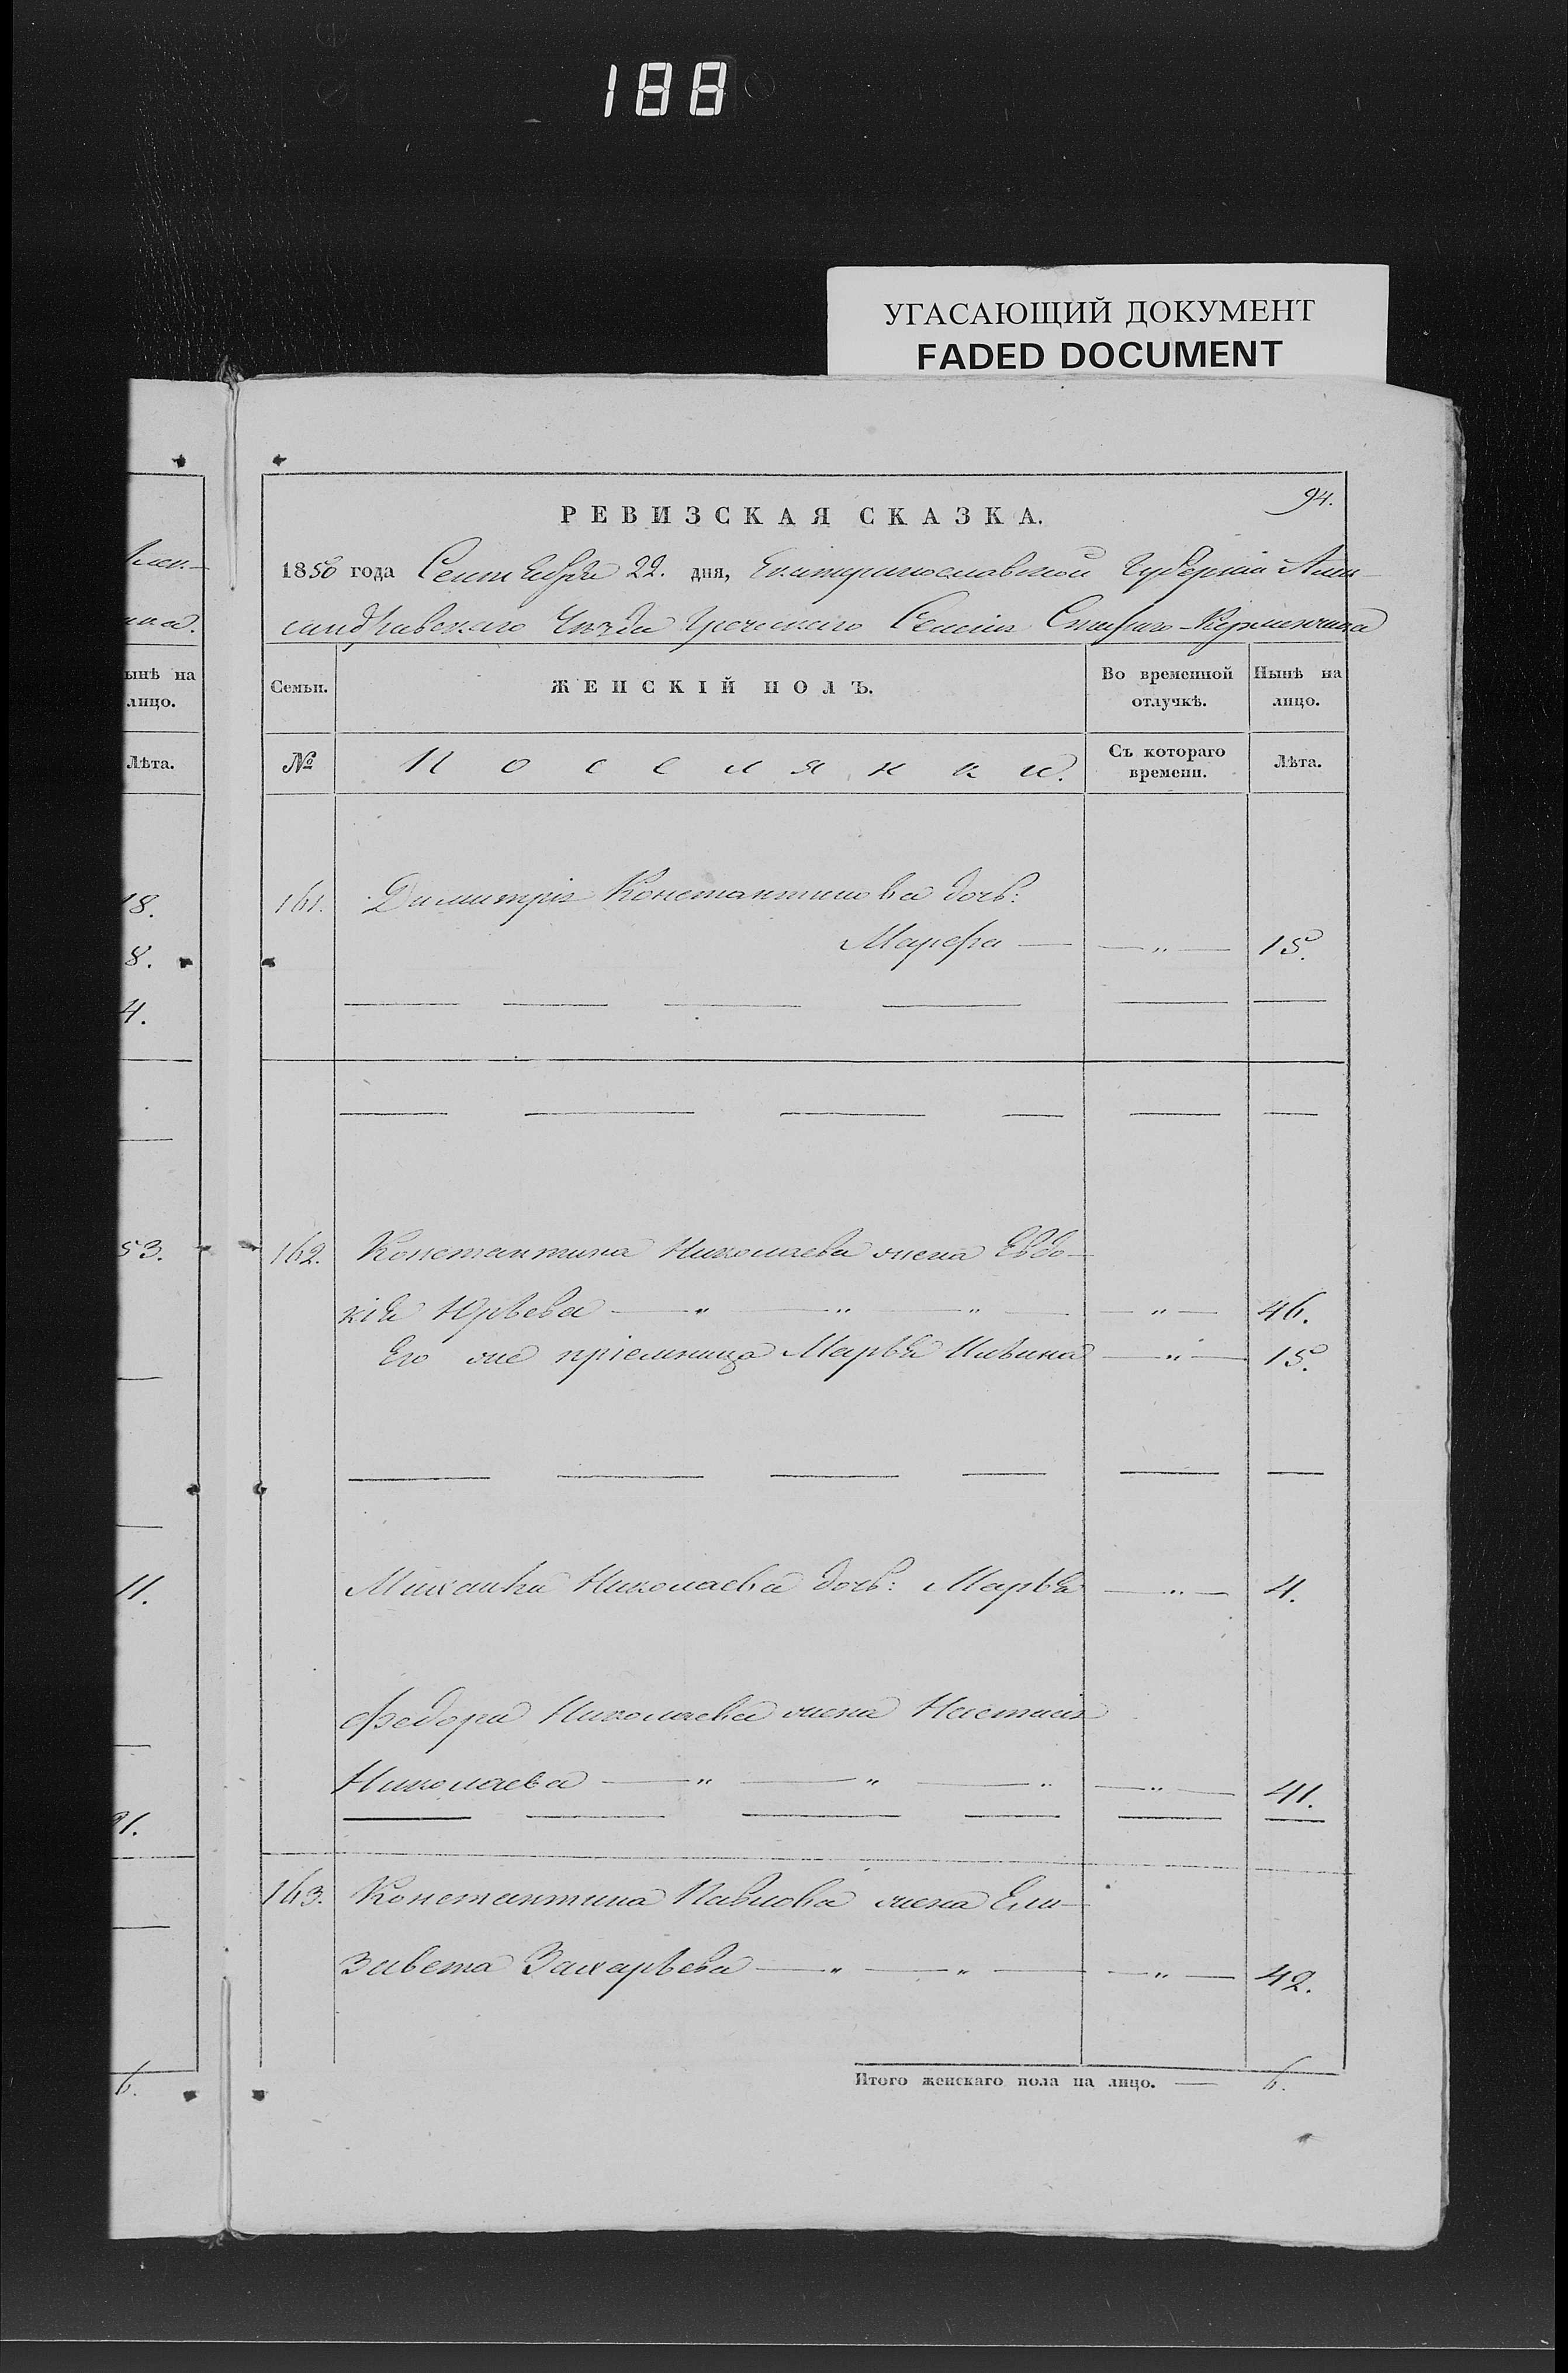 188
УГАСАЮЩИЙ ДОКУМЕНТ
FADED DOCUMENT
94.
РЕВИЗСКАЯ СКАЗКА.
1850 года Сентября 22. дня, Екатеринославской Губерніи Алек-
сандровскаго Уѣзда Греческаго Селенія Стараго-Керменчика
Семьи.
ЖЕНСКІЙ ПОЛЪ.
Во временной отлучкѣ.
Нынѣ на лицо.
№
Поселянки.
Съ котораго времени.
Лѣта.
161. Димитрія Константинова дочь:
Марфа — — „ — 15.
162. Константина Николаева жена Евдо-
кія Юрьева — „ — „ — „ — — „ — 46.
Его же пріемница Марья — „ — 15.
Михаила Николаева дочь: Марья — „ — 4.
Федора Николаева жена Настасія
Николаева — „ — „ — „ — „ — 41.
163. Константина Павлова жена Ели-
завета Захарьева — „ — „ — — „ — 42.
Итого женскаго пола на лицо. — 6.
ынѣ на
лицо.
Лѣта.
18.
8.
4.
53.
11.
6.